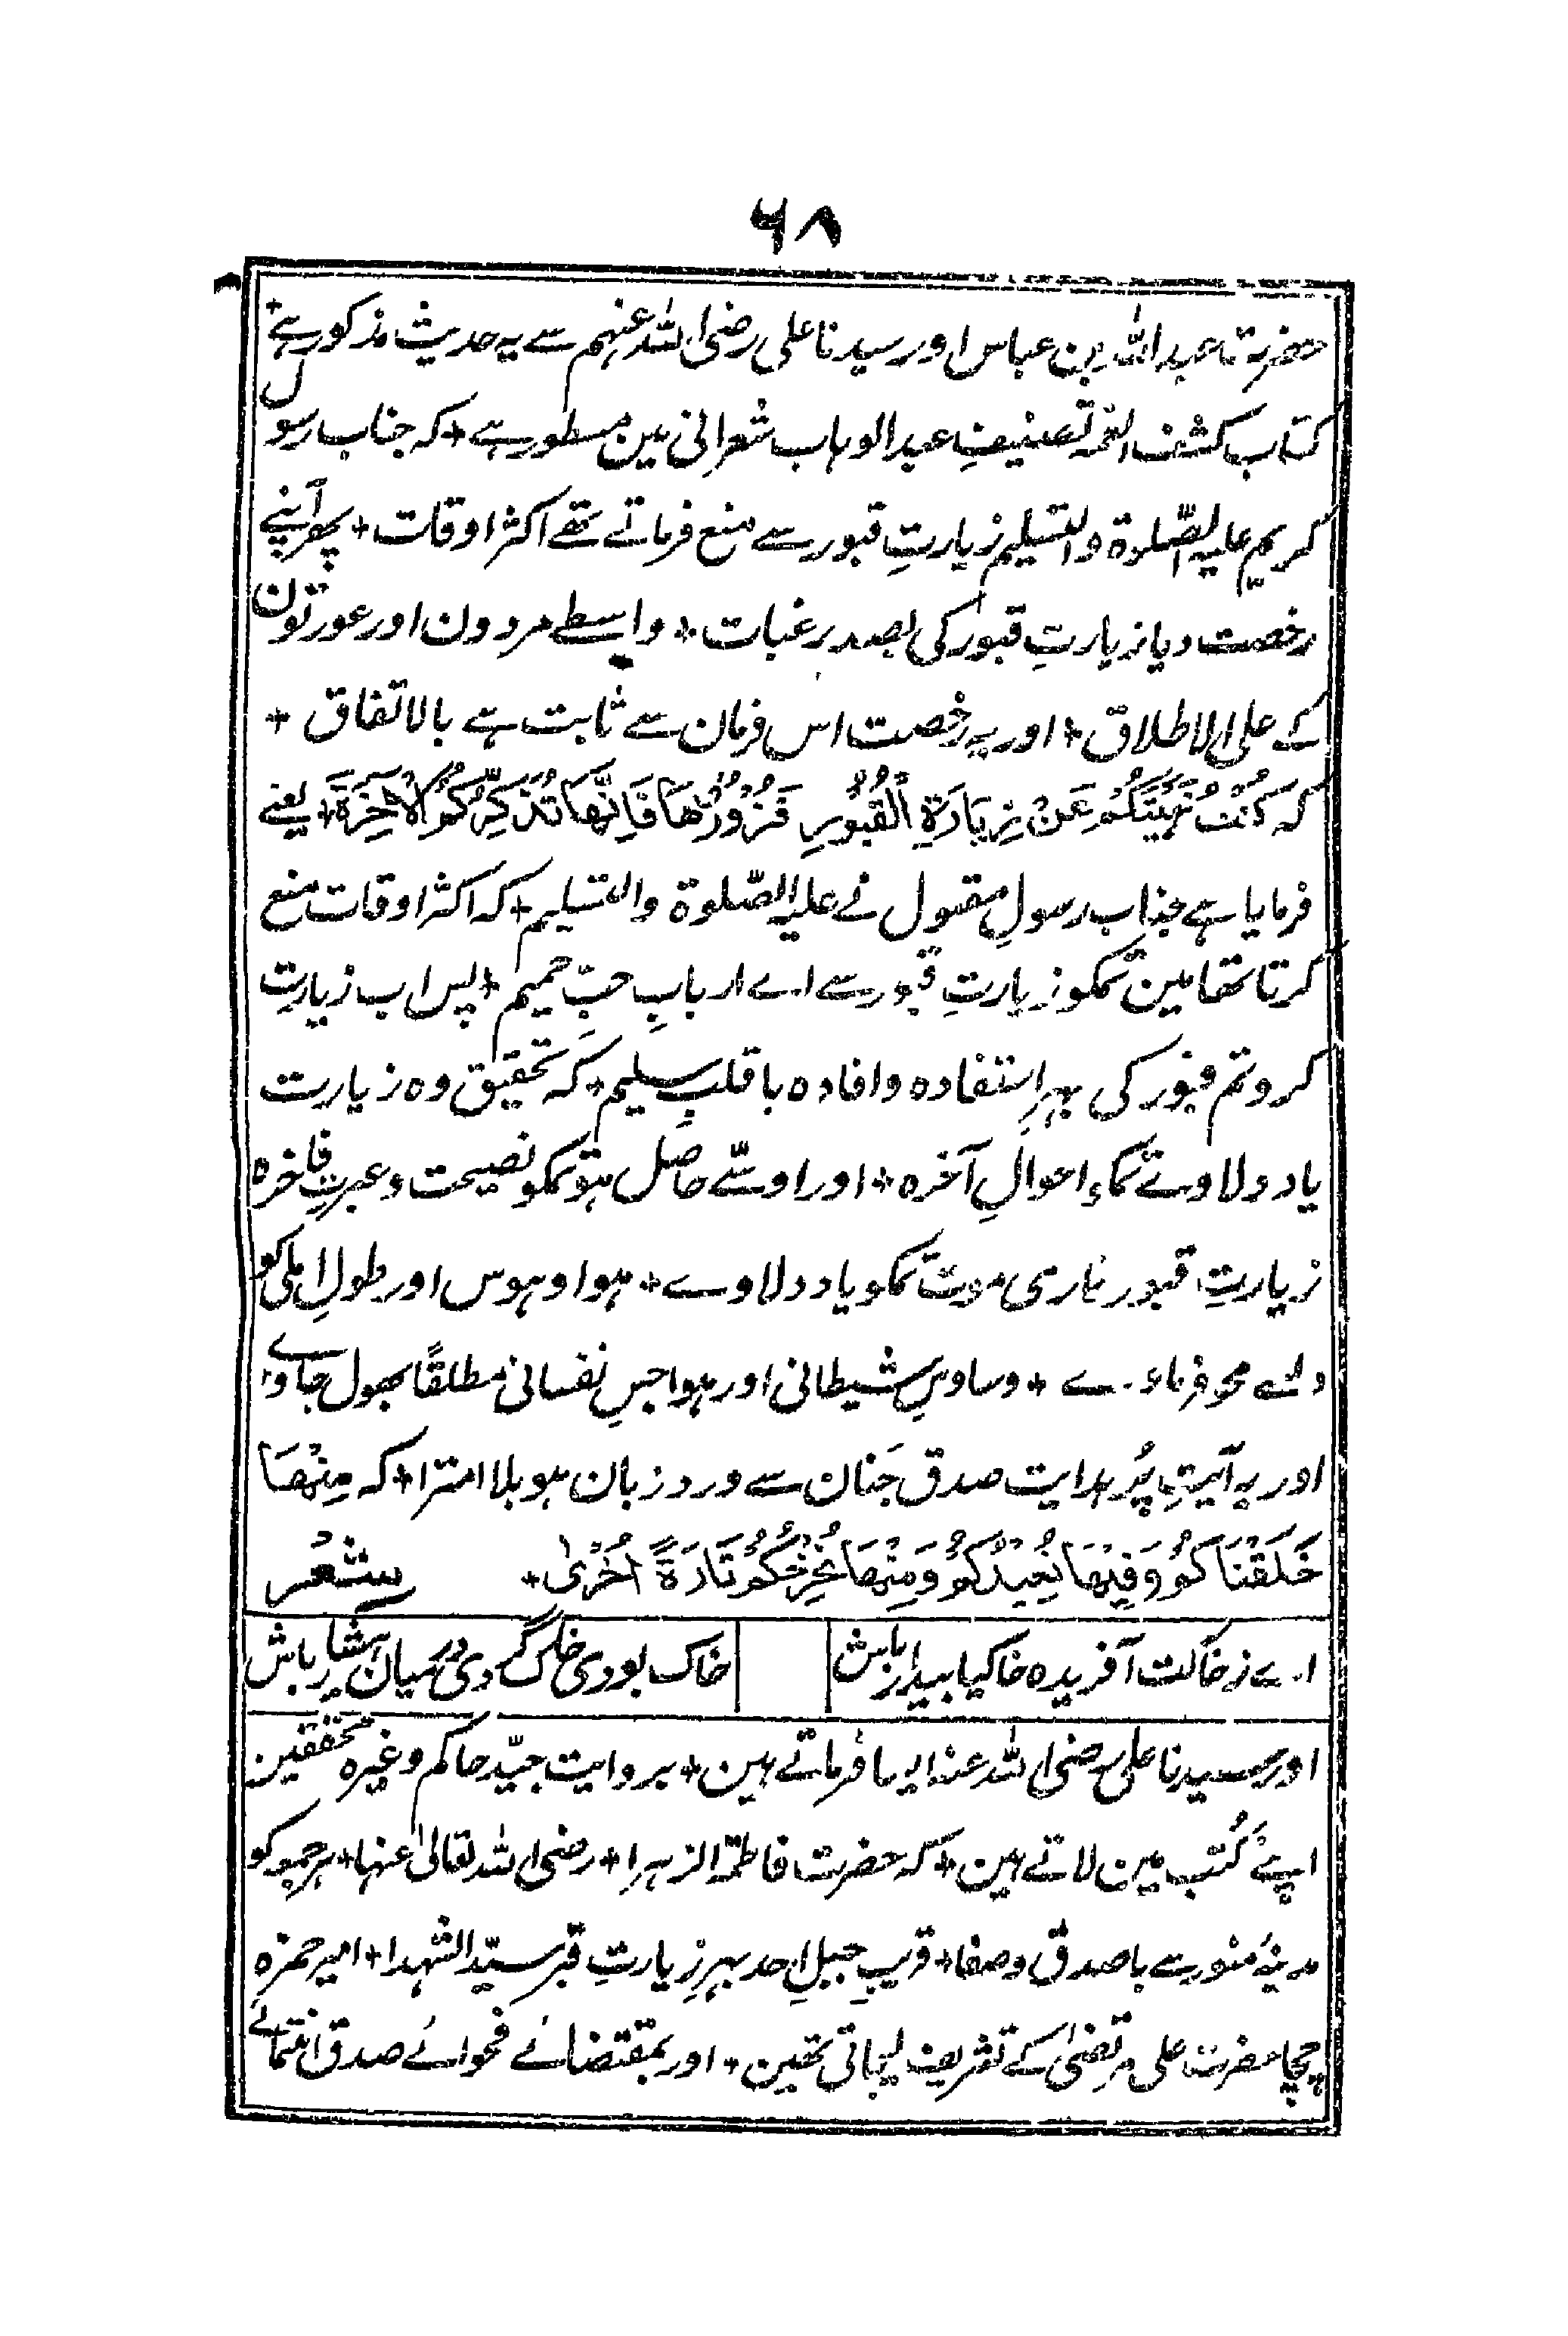 ۶۸
حضرت عبداللہ بن عباس اور سیدنا علی رضی اللہ عنہم سے یہ حدیث مذکور ہے +
کتاب کشف الغمہ تصنیفِ عبدالوہاب شعرانی مین مسطور ہے + کہ جناب رسول
کریم علیہ الصّلوۃ والتسلیم زیارتِ قبور سے منع فرماتے تھے اکثر اوقات + پھر آپنے
رخصت دیا زیارتِ قبور کی بصد رغبات + واسطے مردون اور عورتون
کے علی الاطلاق + اور یہ رخصت اس فرمان سے ثابت ہے بالاتفاق +
کہ کُنْتُ نَهَيْتُكُمْ عَنْ زِيَارَةِ الْقُبُوْرِ فَزُوْرُوْهَا فَاِنَّهَا تُذَكِّرُكُمُ الْاٰخِرَةَ + یعنے
فرمایا ہے جناب رسولِ مقبول نے علیہ الصّلوۃ والتسلیم + کہ اکثر اوقات منع
کرتا تھا مین تمکو زیارتِ قبور سے اے اربابِ حبِّ حمیم + پس اب زیارت
کرو تم قبور کی بہرِ استفادہ وافادہ با قلبِ سلیم + کہ تحقیق وہ زیارت
یاد دلاوے تمکو احوالِ آخرہ + اور اوسّے حاصل ہو تمکو نصیحت و عبرتِ فاخرہ
زیارتِ قبور نار سی موت تمکو یاد دلاوے + ہوا و ہوس اور طولِ املی کو
دلسے محو فرماوے + وساوسِ شیطانی اور ہواجسِ نفسانی مطلقًا بھول جاوے +
اور یہ آیتِ پُر ہدایت صدق جَنان سے ورد زبان ہو بلا امترا + کہ مِنْهَا
خَلَقْنَاكُمْ وَفِيْهَا نُعِيْدُكُمْ وَمِنْهَا نُخْرِجُكُمْ تَارَةً اُخْرٰى + شعر
اے ز خاکت آفریدہ خاکیا بیدار باش خاک بودی خاک گردی در میان ہشیار باش
اور سیدنا علی رضی اللہ عنہ ایسا فرماتے ہین + بروایت جیّد حاکم وغیرہ محققین
اپنے کُتب مین لاتے ہین + کہ حضرت فاطمۃ الزہرا + رضی اللہ تعالیٰ عنہا + ہر جمعہ کو
مدینۂ منورہ سے با صدق و صفا + قریبِ جبلِ احد بہرِ زیارتِ قبر سیّد الشہدا + امیر حمزہ
چچا حضرت علی مرتضیٰ کے تشریف لیجاتی تھین + اور بمقتضائے فحوائے صدق انتمائے